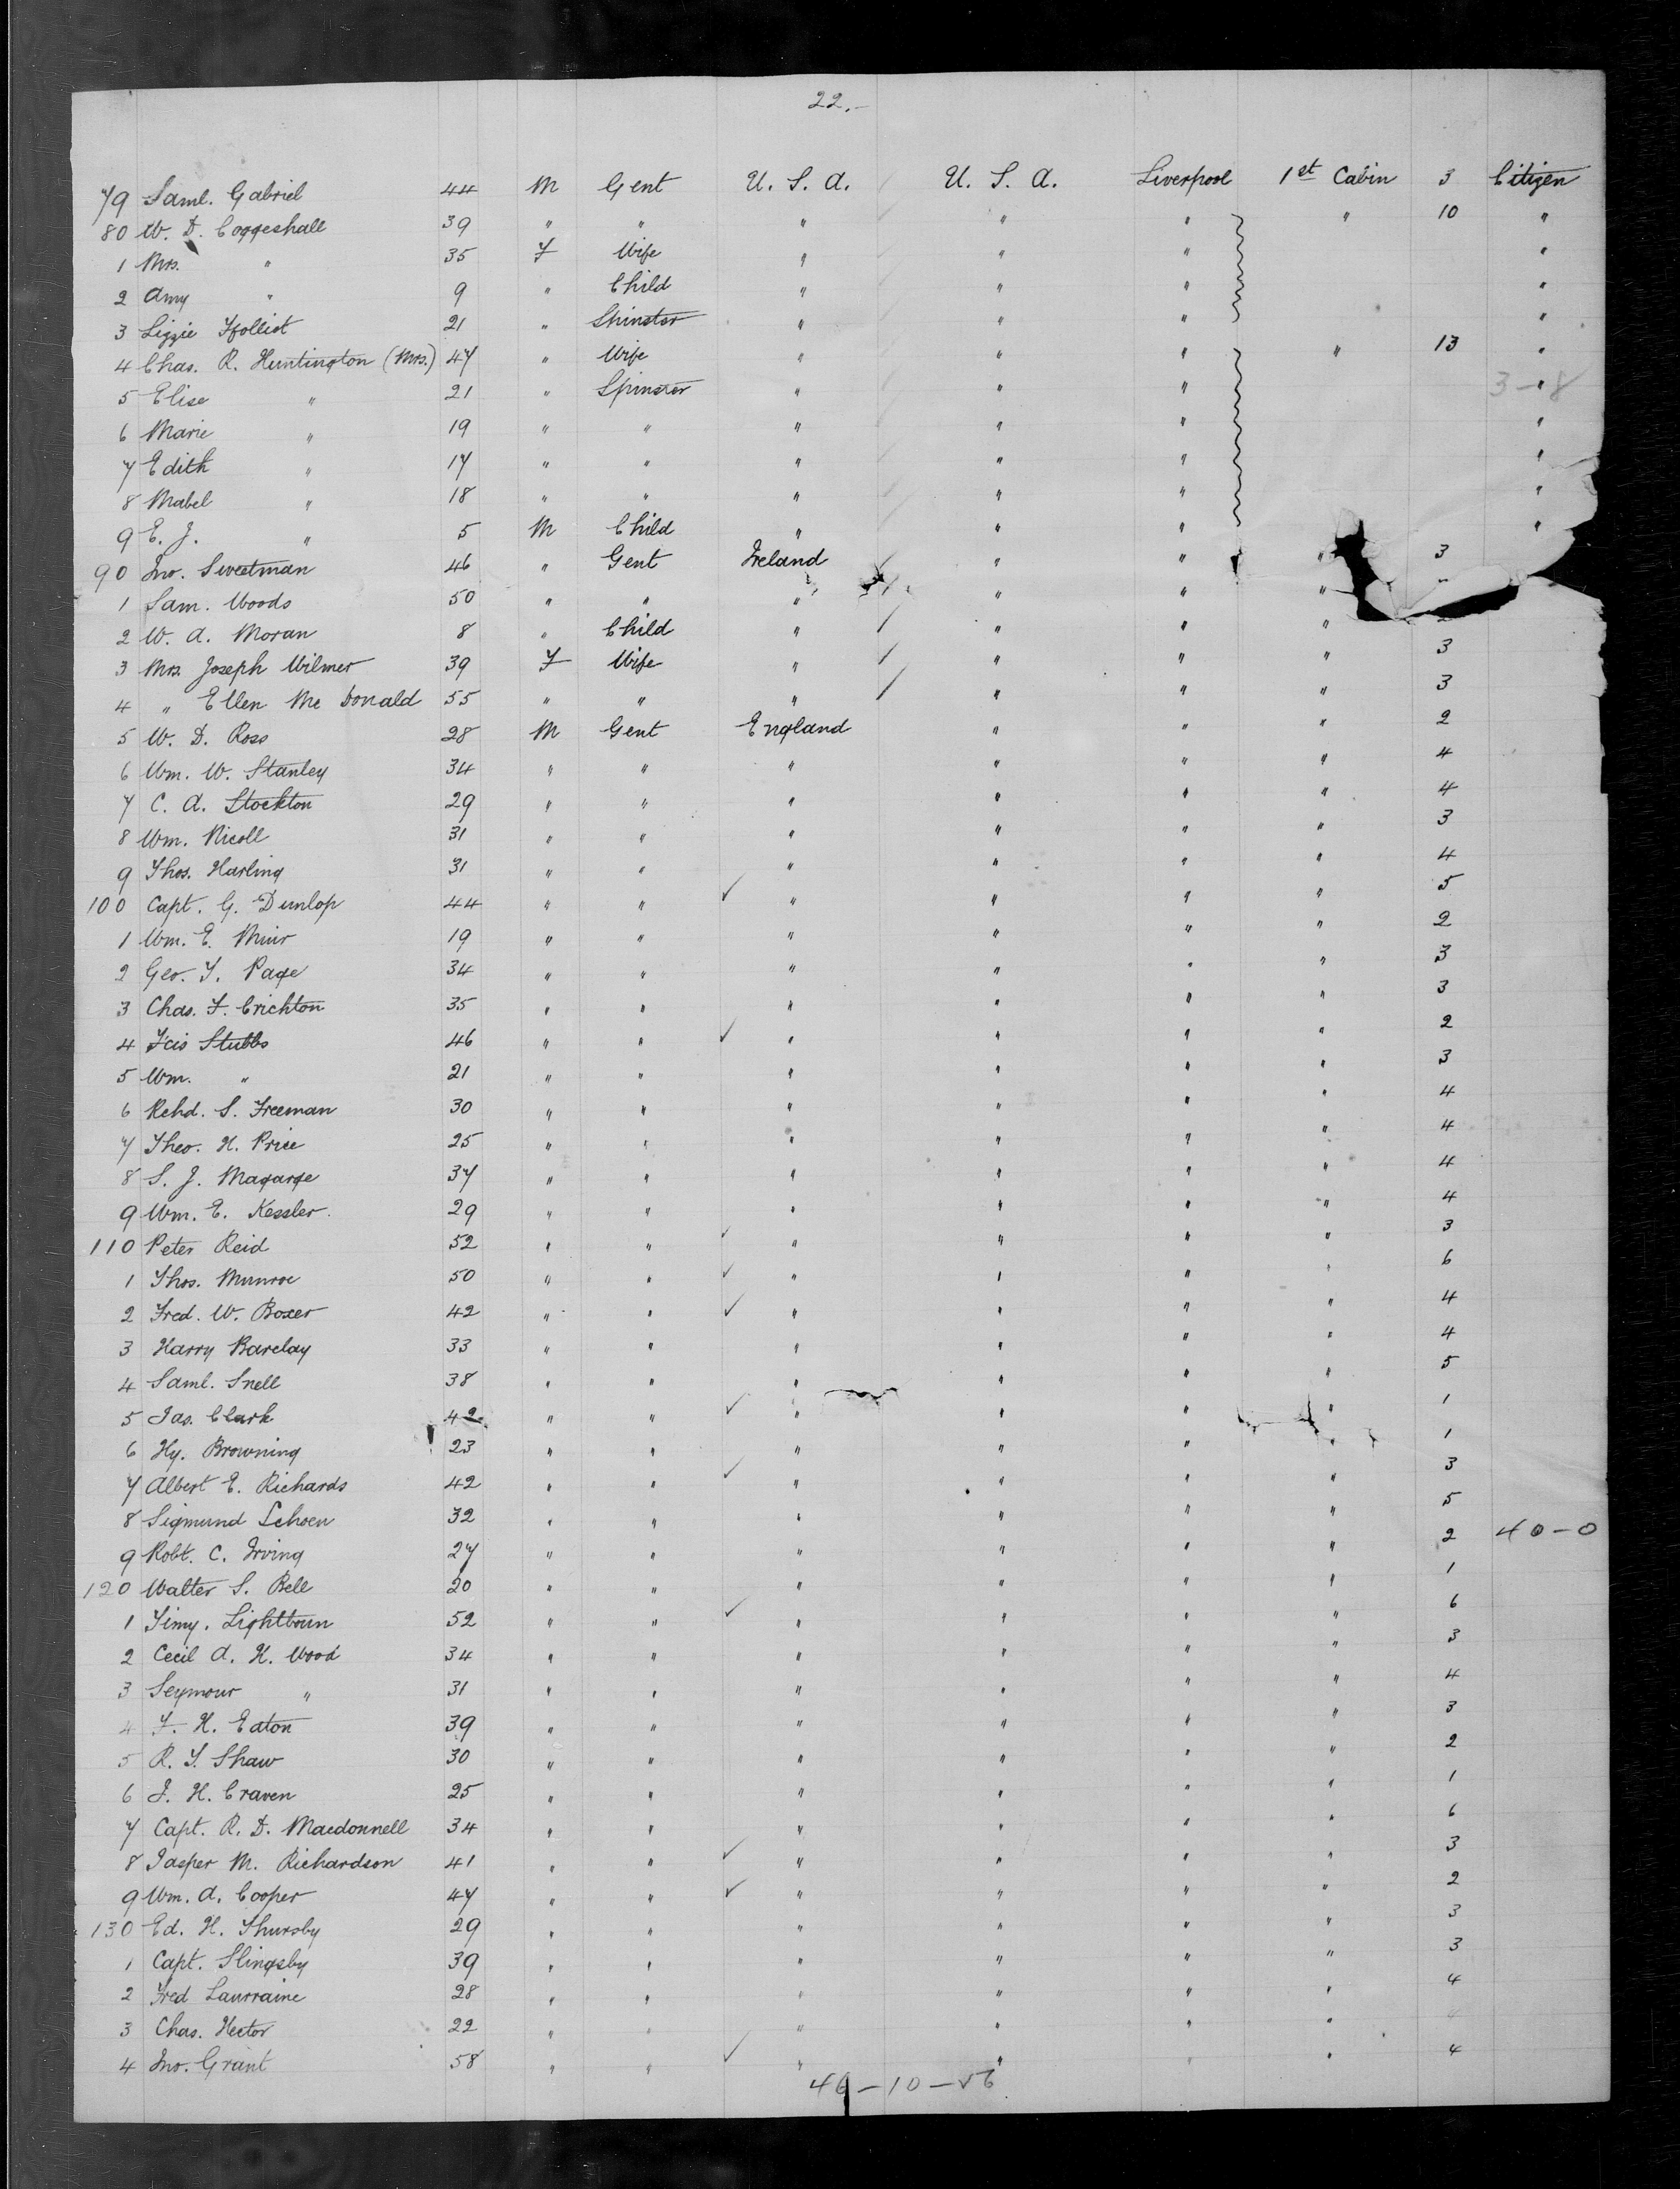 22.-
79 Saml. Gabriel 44 M Gent U. S. A. U. S. A. Liverpool 1st Cabin 3 Citizen
80 W. D. Coggeshall 39 " " " " " " 10 "
1 Mrs. " 35 F Wife " " " "
2 Amy " 9 " Child " " " "
3 Lizzie Ffolliot 21 " Spinster " " " "
4 Chas. R. Huntington (Mrs.) 47 " Wife " " " " 13 "
5 Elise " 21 " Spinster " " " " 3-8
6 Marie " 19 " " " " " "
7 Edith " 17 " " " " " "
8 Mabel " 18 " " " " " "
9 E. J. " 5 M Child " " " "
90 Jno. Sweetman 46 " Gent Ireland " " " 3
1 Sam. Woods 50 " " " " " "
2 W. A. Moran 8 " Child " " " "
3 Mrs. Joseph Wilmer 39 F Wife " " " " 3
4 " Ellen Mc Donald 55 " " " " " " 3
5 W. D. Ross 28 M Gent England " " " 2
6 Wm. W. Stanley 34 " " " " " " 4
7 C. A. Stockton 29 " " " " " " 4
8 Wm. Nicoll 31 " " " " " " 3
9 Thos. Harling 31 " " " " " " 4
100 Capt. G. Dunlop 44 " " ✓ " " " " 5
1 Wm. E. Muir 19 " " " " " " 2
2 Geo. T. Page 34 " " " " " " 3
3 Chas. F. Crichton 35 " " " " " " 3
4 Fcis Stubbs 46 " " ✓ " " " " 2
5 Wm. " 21 " " " " " " 3
6 Rchd. S. Freeman 30 " " " " " " 4
7 Theo. H. Price 25 " " " " " " 4
8 S. J. Magarge 37 " " " " " " 4
9 Wm. E. Kessler. 29 " " " " " " 4
110 Peter Reid 52 " " ✓ " " " " 3
1 Thos. Munroe 50 " " ✓ " " " " 6
2 Fred. W. Boxer 42 " " ✓ " " " " 4
3 Harry Barclay 33 " " " " " " 4
4 Saml. Snell 38 " " " " " " 5
5 Jas. Clark 42 " " ✓ " " " " 1
6 Hy. Browning 23 " " " " " " 1
7 Albert E. Richards 42 " " ✓ " " " " 3
8 Sigmund Schoen 32 " " " " " " 5
9 Robt. C. Irving 27 " " " " " " 2 40-0
120 Walter S. Bell 20 " " " " " " 1
1 Timy. Lightbourn 52 " " ✓ " " " " 6
2 Cecil A. H. Wood 34 " " " " " " 3
3 Seymour " 31 " " " " " " 4
4 F. H. Eaton 39 " " " " " " 3
5 R. T. Shaw 30 " " " " " " 2
6 J. H. Craven 25 " " " " " " 1
7 Capt. R. D. Macdonnell 34 " " " " " " 6
8 Jasper M. Richardson 41 " " ✓ " " " " 3
9 Wm. A. Cooper 47 " " ✓ " " " " 2
130 Ed. H. Thursby 29 " " " " " " 3
1 Capt. Slingsby 39 " " " " " " 3
2 Fred Laurraine 28 " " " " " " 4
3 Chas. Hector 22 " " " " " "
4 Jno. Grant 58 " " ✓ " " " " 4